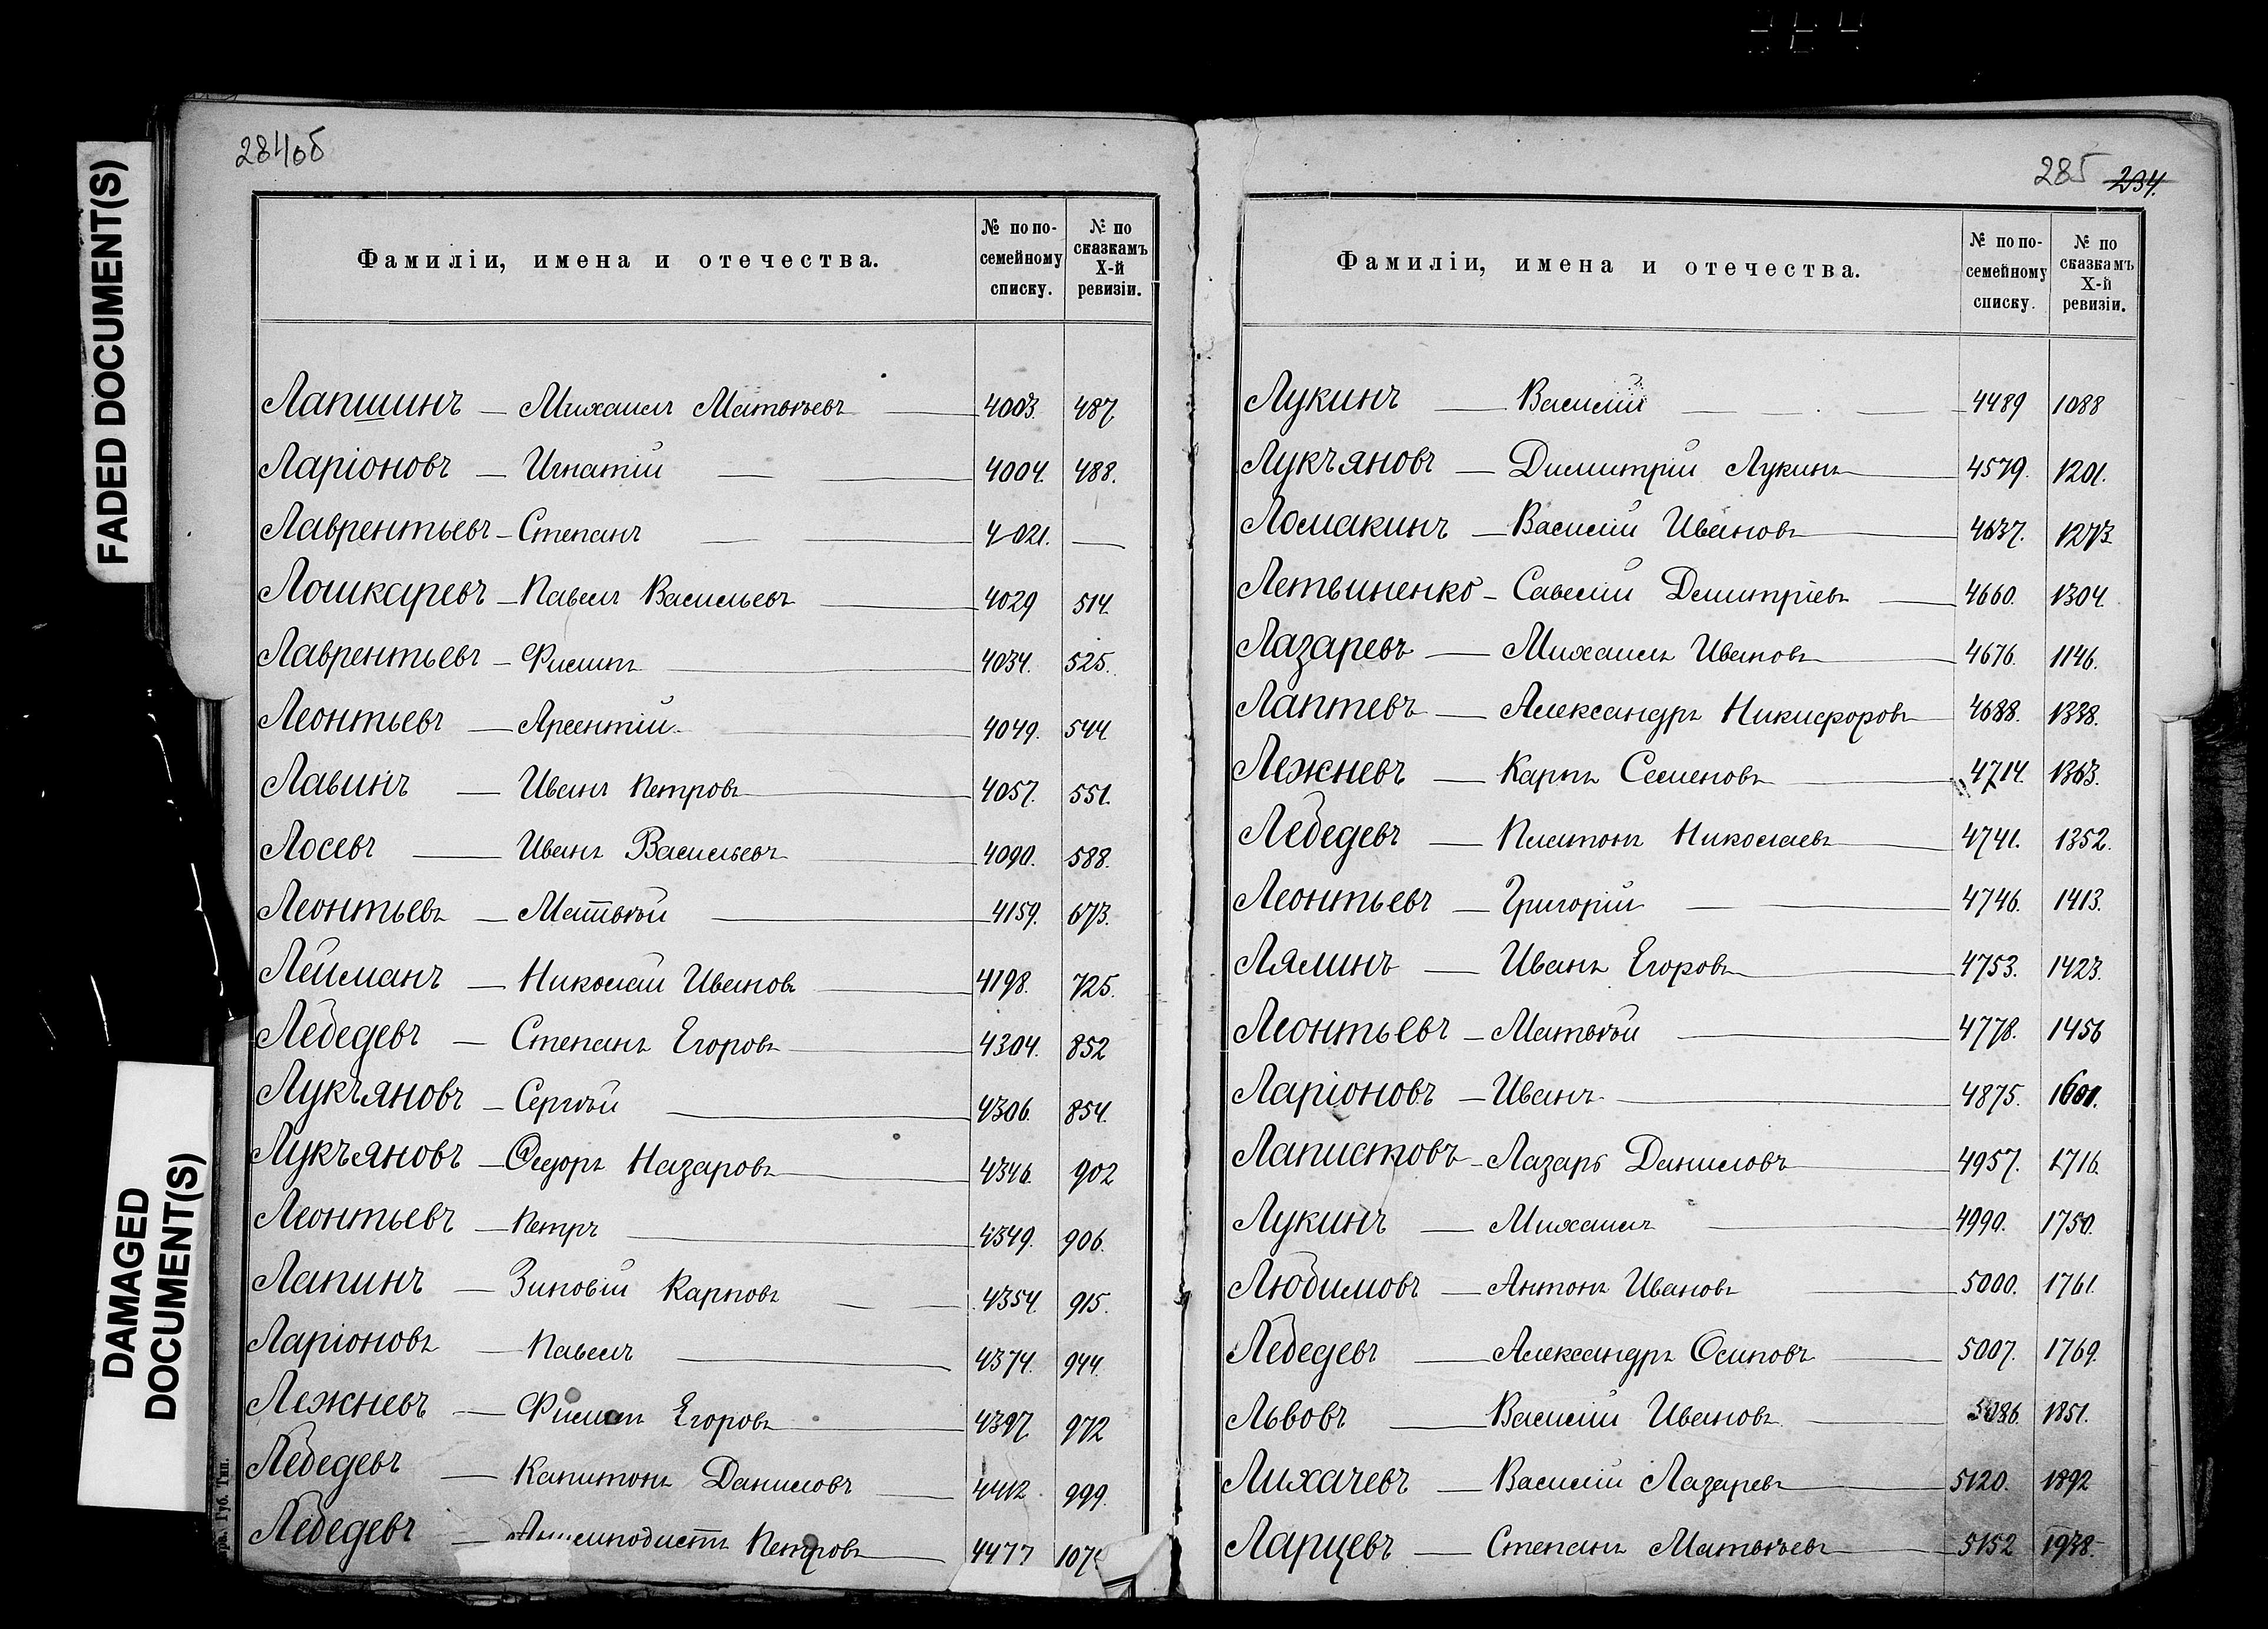 284об
Фамиліи, имена и отечества. № по по-семейному списку. № по сказкамъ X-й ревизіи.
Лапшинъ — Михаилъ Матвѣевъ — 4003. 487
Ларіоновъ — Игнатій — 4004. 488.
Лаврентьевъ — Степанъ — 4021. —
Лошкаревъ — Павелъ Васильевъ — 4029 514.
Лаврентьевъ — Филипъ — 4034. 525.
Леонтьевъ — Арсентій — 4049. 544.
Лавинъ — Иванъ Петровъ — 4057. 551.
Лосевъ — Иванъ Васильевъ — 4090. 588.
Леонтьевъ — Матвѣй — 4159. 673.
Лейманъ — Николай Ивановъ — 4198. 725.
Лебедевъ — Степанъ Егоровъ — 4304. 852
Лукъяновъ — Сергѣй — 4306. 854.
Лукъяновъ — Ѳедоръ Назаровъ — 4346. 902
Леонтьевъ — Петръ — 4349. 906.
Лапинъ — Зиновій Карповъ — 4354. 915.
Ларіоновъ — Павелъ — 4374. 944.
Лежневъ — Филипъ Егоровъ — 4397 972
Лебедевъ — Капитонъ Даниловъ — 4412 999.
Лебедевъ — Петровъ — 4477
285 234.
Фамиліи, имена и отечества. № по по-семейному списку. № по сказкамъ X-й ревизіи.
Лукинъ — Василій — 4489 1088
Лукъяновъ — Димитрій Лукинъ — 4579. 1201.
Ломакинъ — Василій Ивановъ — 4637. 1273
Летвиненко — Савелій Димитріевъ — 4660. 1304.
Лазаревъ — Михаилъ Ивановъ — 4676. 1146.
Лаптевъ — Александръ Никифоровъ — 4688. 1338.
Лежневъ — Карпъ Семеновъ — 4714. 1363.
Лебедевъ — Платонъ Николаевъ — 4741. 1352.
Леонтьевъ — Григорій — 4746. 1413.
Ляминъ — Иванъ Егоровъ — 4753. 1423.
Леонтьевъ — Матвѣй — 4778. 1456
Ларіоновъ — Иванъ — 4875. 1601.
Лапистовъ — Лазарь Даниловъ — 4957. 1716.
Лукинъ — Михаилъ — 4990. 1750.
Любимовъ — Антонъ Ивановъ — 5000. 1761.
Лебедевъ — Александръ Осиповъ — 5007. 1769.
Львовъ — Василій Ивановъ — 5086. 1851.
Лихачевъ — Василій Лазаревъ — 5120. 1892
Ларцевъ — Степанъ Матвѣевъ — 5152 1938.
FADED DOCUMENT(S)
DAMAGED
DOCUMENT(S)
Губ. Тип.